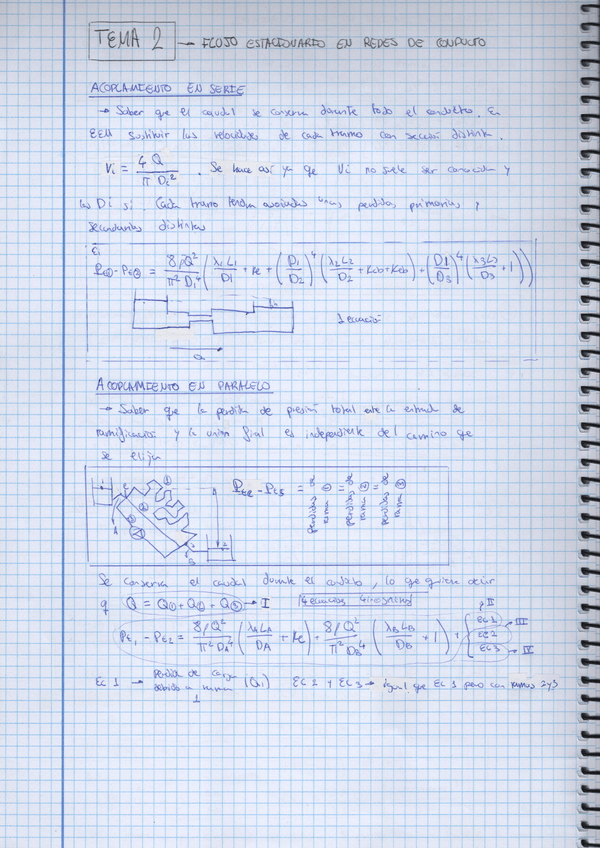 TEMA 2 → FLUJO ESTACIONARIO EN REDES DE CONDUCTO
ACOPLAMIENTO EN SERIE
→ Saber que el caudal se conserva durante todo el conducto. En
EEM sustituir las velocidades de cada tramo con sección distinta.
Vi = 4Q / π Di² . Se hace así ya que Vi no suele ser conocida y
las Di si. Cada tramo tendra asociadas unas perdidas primarias y
secundarias distintas
Ej
= 8ρQ² / π² D1⁴ ( λ1L1/D1 + Ke + (D1/D2)⁴ ( λ2L2/D2 + Kcb + Kcb ) + (D1/D3)⁴ ( λ3L3/D3 + 1 ) )
1 ecuación
Q
ACOPLAMIENTO EN PARALELO
→ Saber que la perdida de presión total entre la entrada de
ramificación y la union final es independiente del camino que
se elija
= perdidas rama ① = perdidas rama ② = perdidas rama ③
Se conserva el caudal durante el conducto, lo que quiere decir
q Q = Q① + Q② + Q③ → I 4 ecuaciones 4 incognitas
Pt1 - Pt2 = 8ρQ² / π² DA⁴ ( λALA/DA + Ke ) + 8ρQ² / π² DB⁴ ( λBLB/DB + 1 ) + { EC 1 → II EC 2 → III EC 3 → IV
EC 1 → perdida de carga debida a rama 1 (Q1) EC 2 y EC 3 → igual que EC 1 pero con ramas 2 y 3